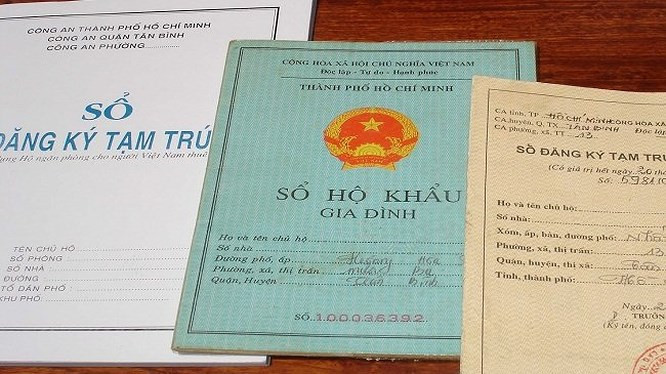 CÔNG AN THÀNH PHỐ HỒ CHÍ MINH
CÔNG AN QUẬN TÂN BÌNH
CÔNG AN PHƯỜNG
SỔ
ĐĂNG KÝ TẠM TRÚ
dạng Hộ ngăn phòng cho người Việt Nam thuê
TÊN CHỦ HỘ
SỐ PHÒNG
SỐ NHÀ
ĐƯỜNG
TỔ DÂN PHỐ
KHU PHỐ
CỘNG HÒA XÃ HỘI CHỦ NGHĨA VIỆT NAM
Độc lập - Tự do - Hạnh phúc
THÀNH PHỐ HỒ CHÍ MINH
SỔ HỘ KHẨU
GIA ĐÌNH
Họ và tên chủ hộ
Số nhà
Đường phố, ấp Hoàng Hoa
Phường, xã, thị trấn mười ba
Quận, Huyện Tân Bình
SỐ 100036392
CA tỉnh, TP HỒ CHÍ MINH CỘNG HÒA XÃ
CA huyện, Q, TX TÂN BÌNH Độc
CA phường, xã, TT 13
SỔ ĐĂNG KÝ TẠM TRÚ
(Có giá trị hết ngày 20 thá
Số: 59811
Họ và tên chủ hộ:
Số nhà:
Xóm, ấp, bản, đường phố:
Phường, xã, thị trấn: 13
Quận, huyện, thị xã: Tân
Tỉnh, thành phố: Hồ
Ngày 2
TRƯỞN
(Ký tên, đóng